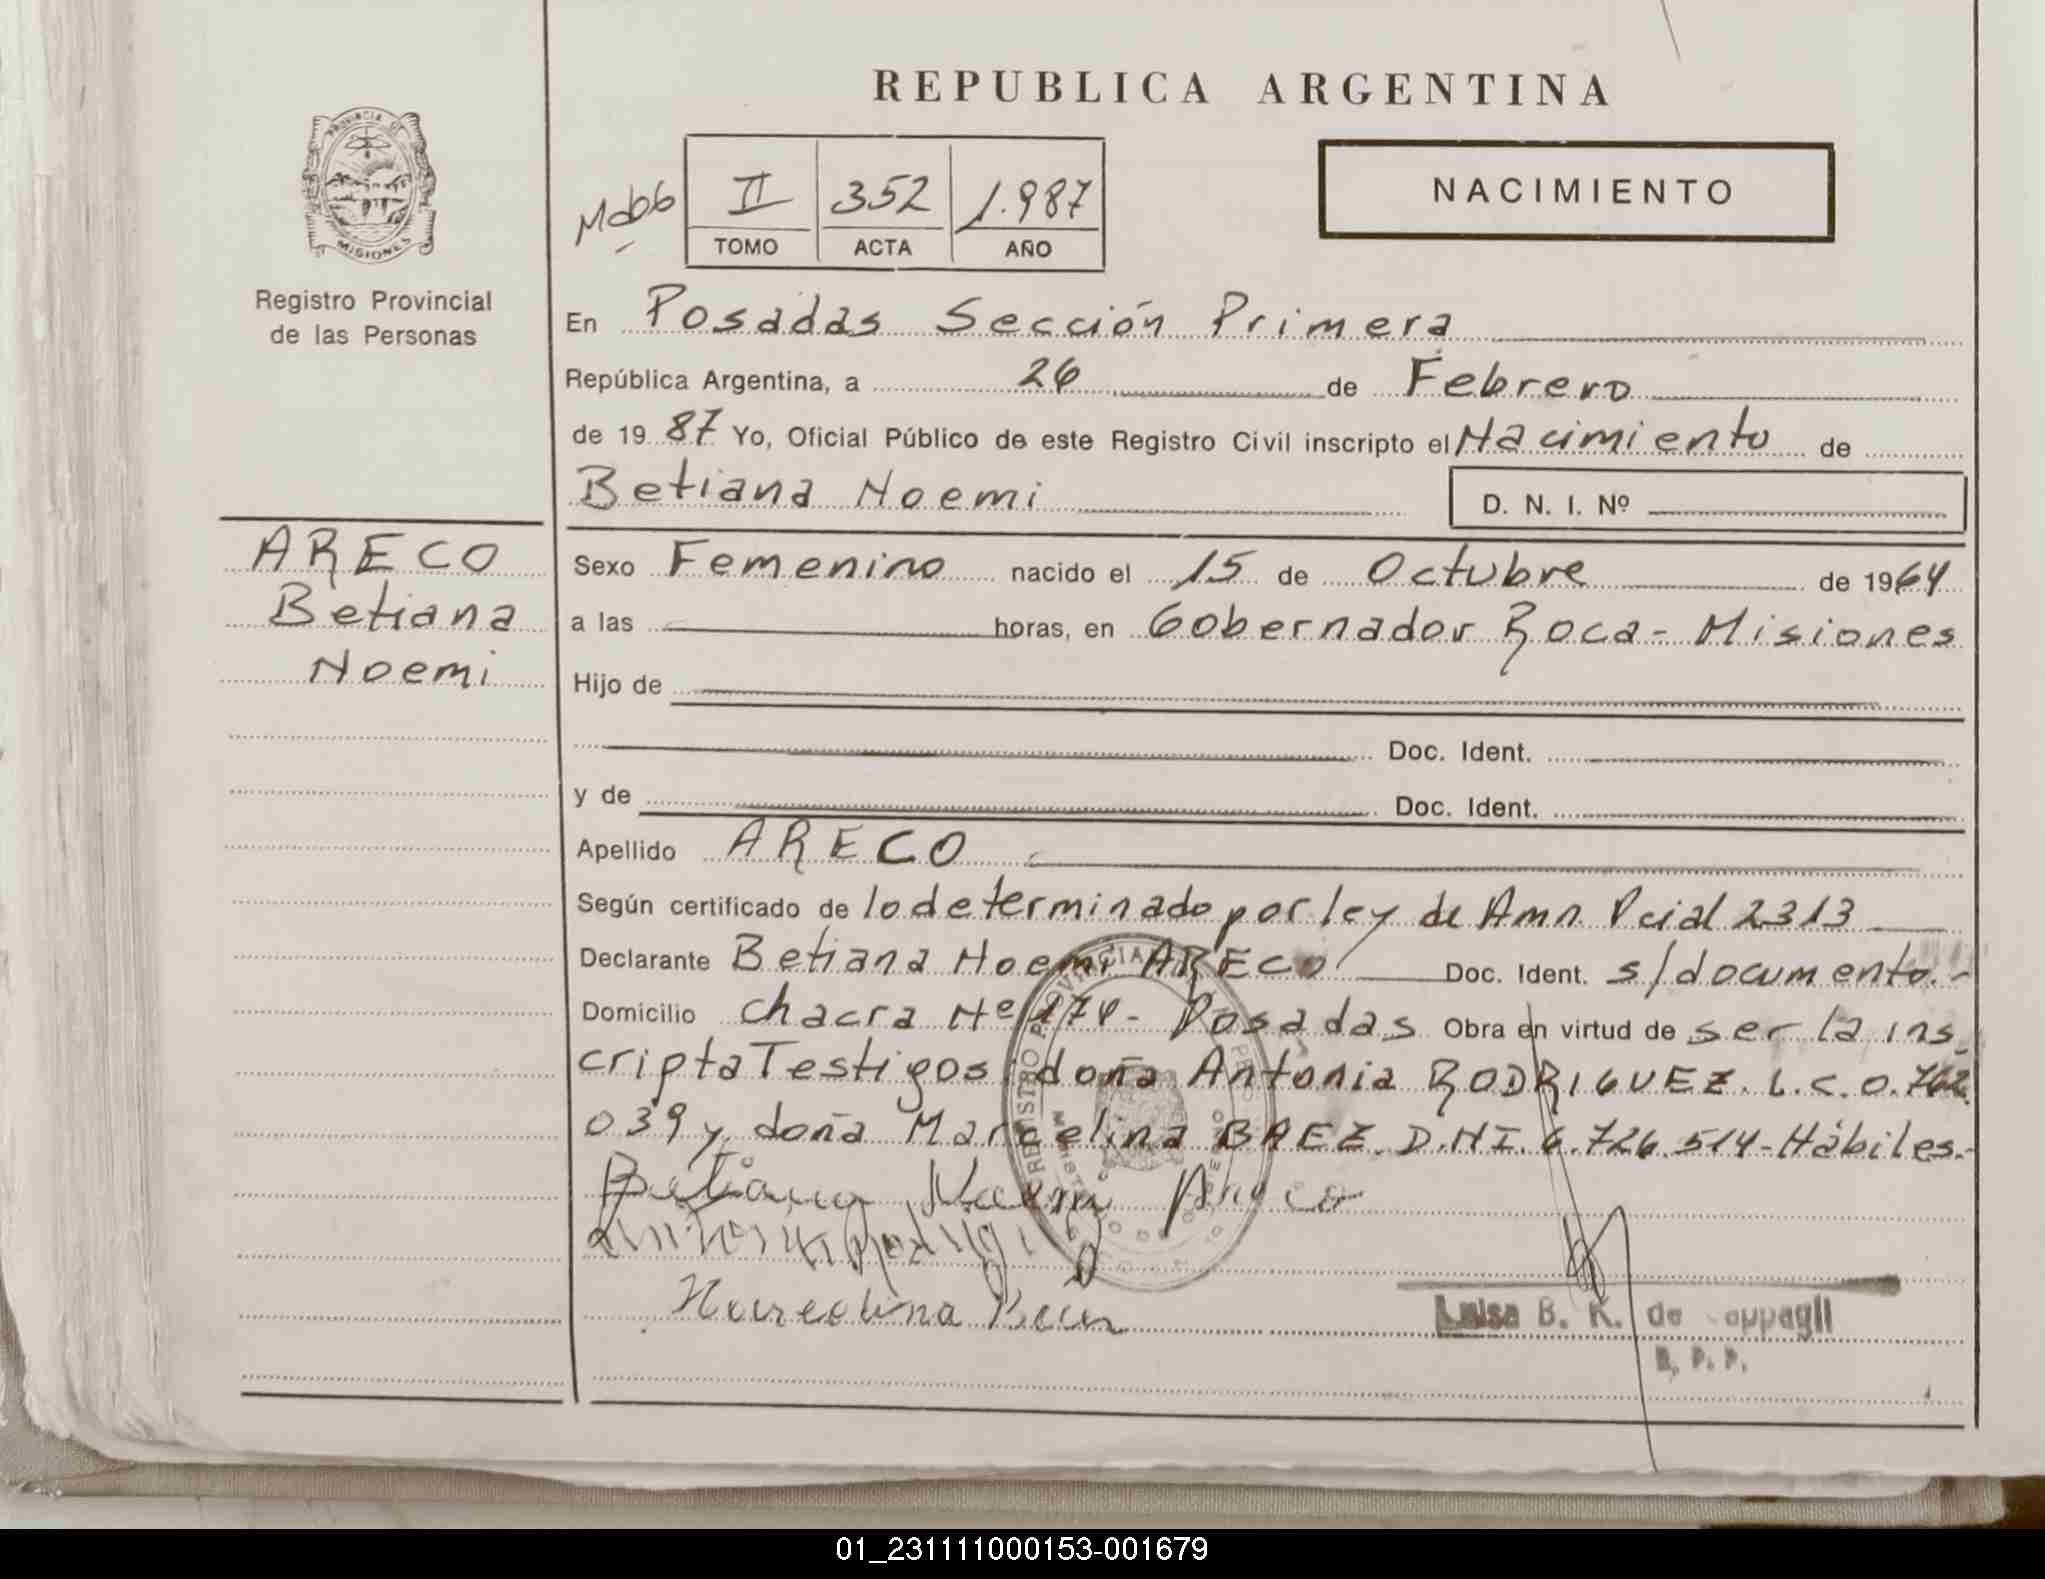 REPUBLICA ARGENTINA
PROVINCIA DE
MISIONES
Registro Provincial
de las Personas
II 352 1.987
TOMO ACTA AÑO
NACIMIENTO
En Posadas Sección Primera
República Argentina, a 26 de Febrero
de 1987 Yo, Oficial Público de este Registro Civil inscripto el Nacimiento de
Betiana Noemi D. N. I. Nº
ARECO
Betiana
Noemi
Sexo Femenino nacido el 15 de Octubre de 1964
a las horas, en Gobernador Roca - Misiones
Hijo de
Doc. Ident.
y de Doc. Ident.
Apellido ARECO
Según certificado de lo determinado por ley de Amn. Pcial 2313
Declarante Betiana Noemi ARECO Doc. Ident. s/documento.-
Domicilio Chacra Nº 174 - Posadas Obra en virtud de ser la ins
cripta Testigos: doña Antonia RODRIGUEZ. L.C.0.762.
039 y doña Marcelina BAEZ. D.NI. 6.726.514 - Hábiles.-
Betiana Noemi Areco
Antonia Rodrigu
Marcelina Baez
Luisa B. K. de
R. P. P.
01_231111000153-001679